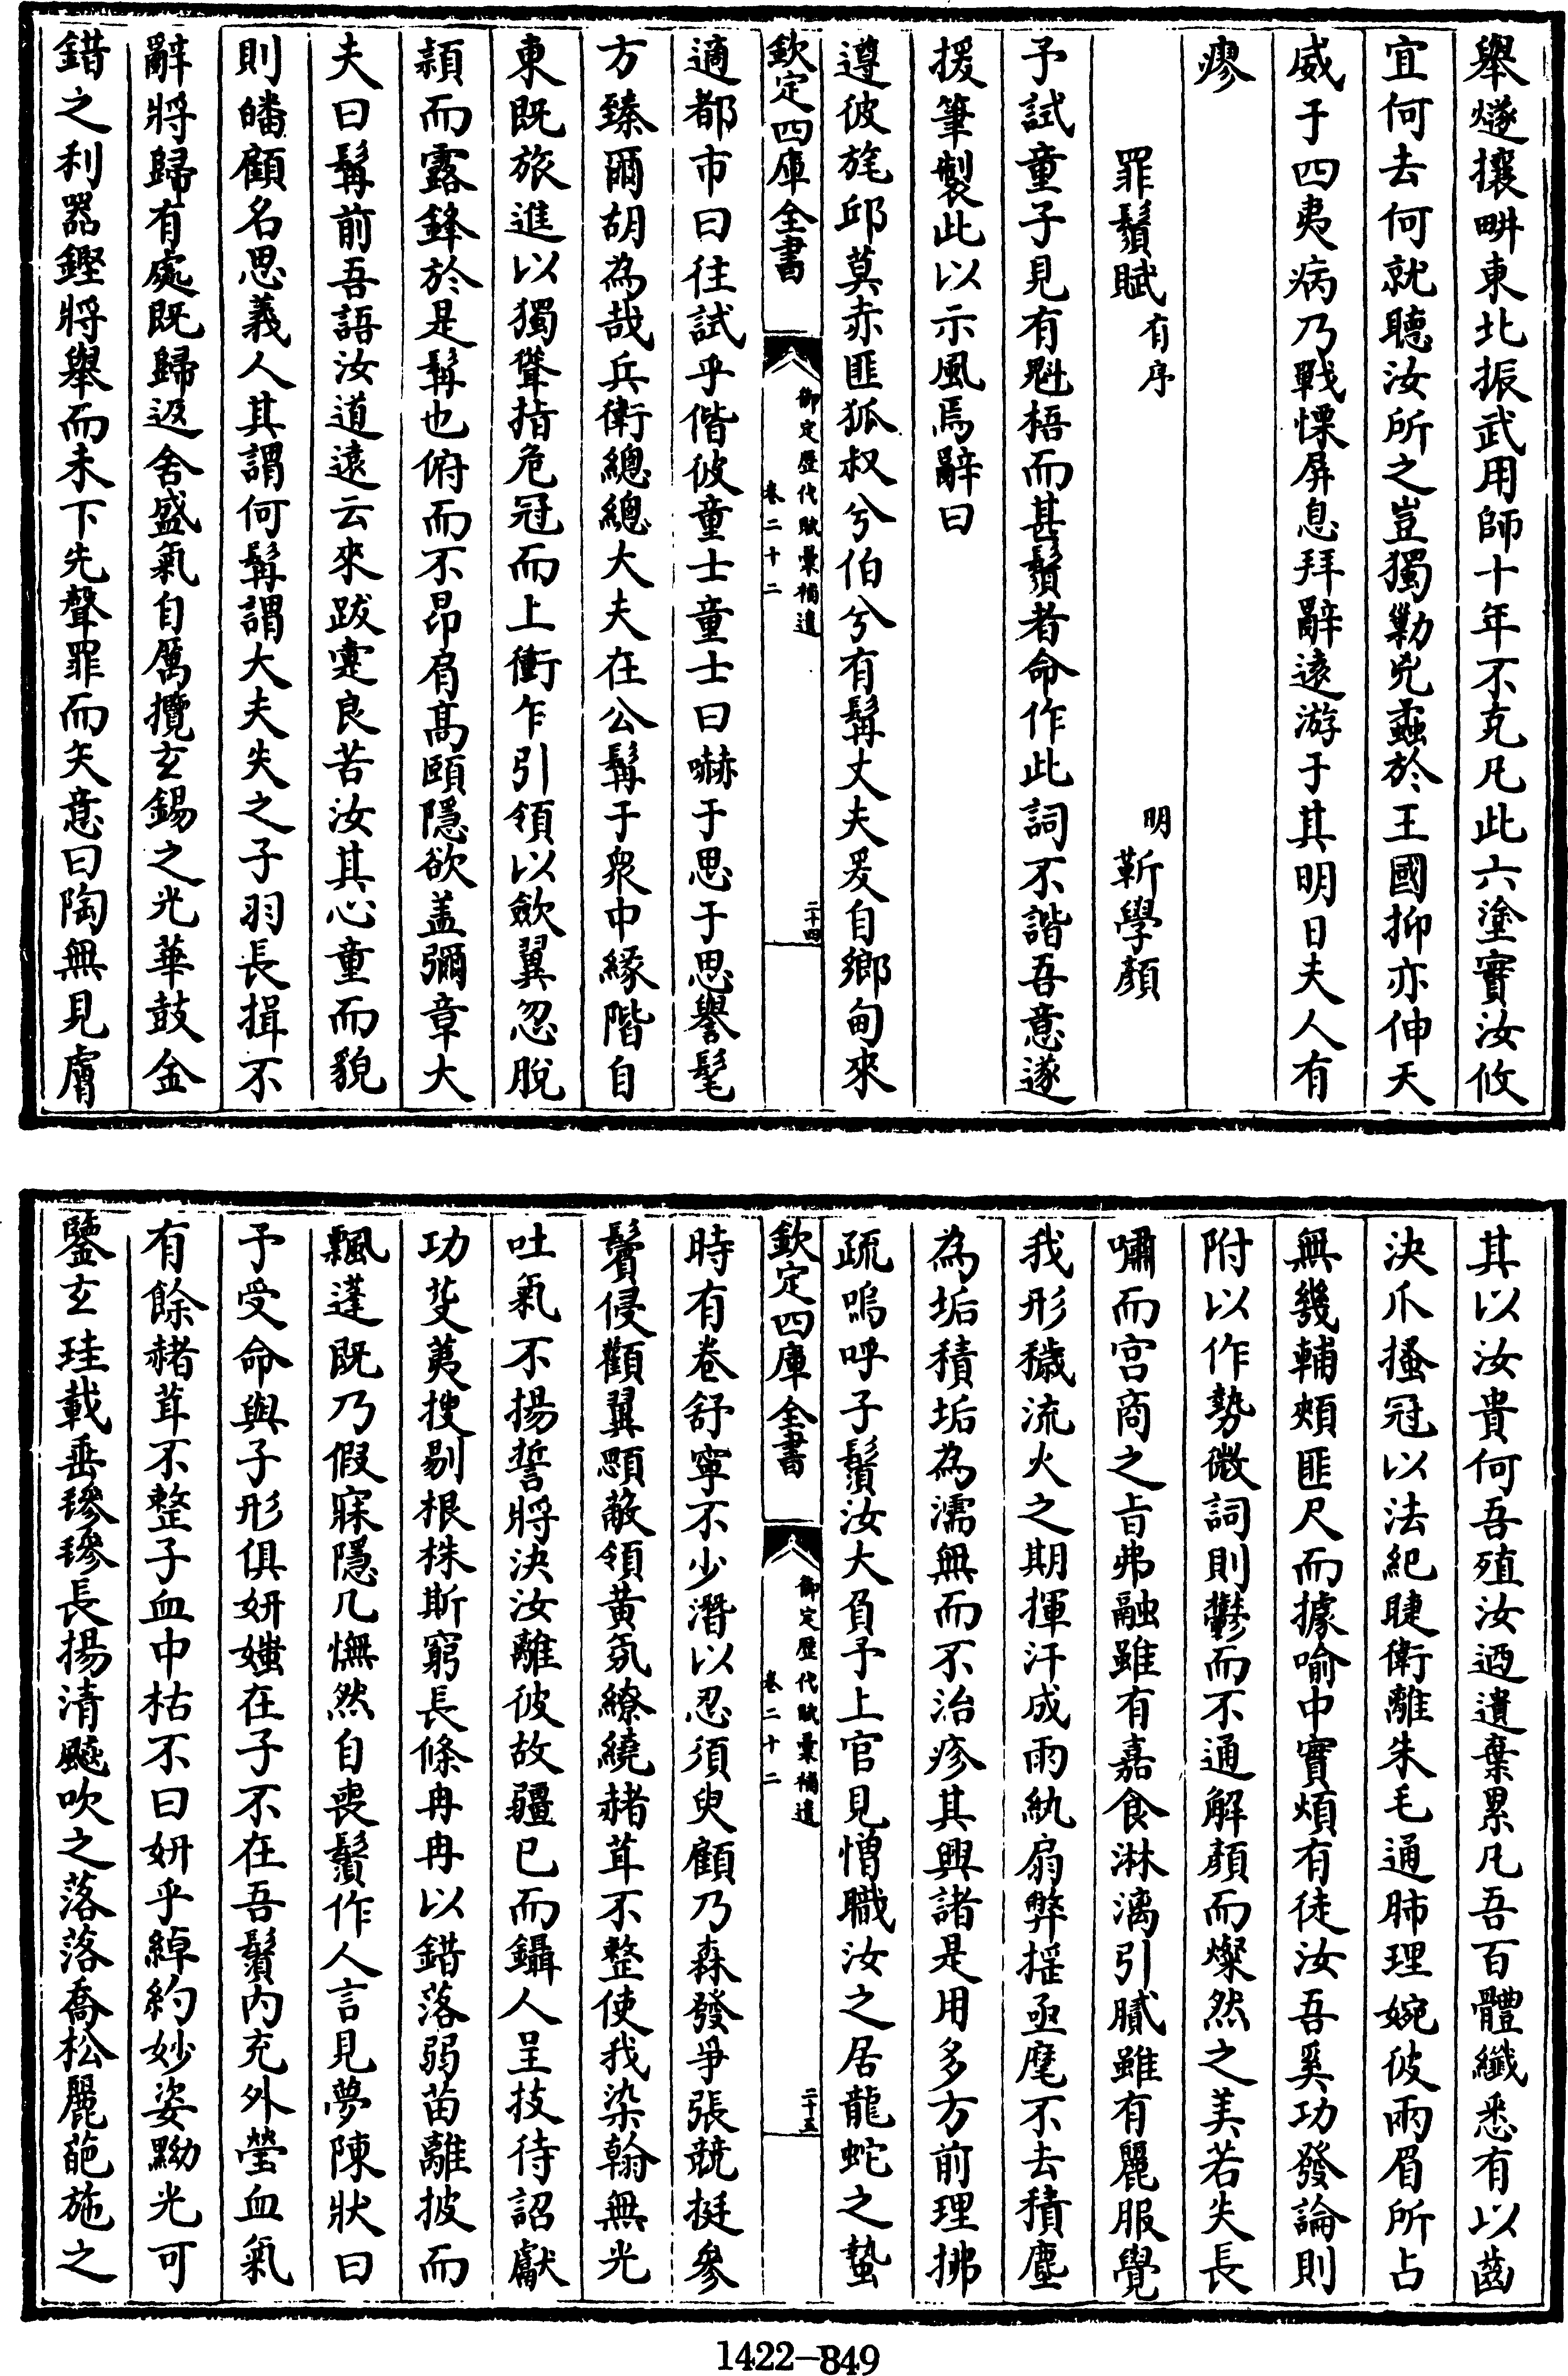 舉燧攘畊東北振武用師十年不克凡此六塗實汝攸
宜何去何就聽汝所之豈獨勦兇蝱於王國抑亦伸天
威于四夷病乃戰慄屏息拜辭遠游于其明日夫人有
瘳
罪鬚賦有序 明 靳學顏
予試童子見有魁梧而甚鬚者命作此詞不諧吾意遂
援筆製此以示風焉辭曰
遵彼旄邱莫赤匪狐叔兮伯兮有髯丈夫爰自鄉甸來
欽定四庫全書 御定歷代賦彙補遺 卷二十二 二十四
適都市曰往試乎偕彼童士童士曰嚇于思于思譽髦
方臻爾胡為哉兵衛總總大夫在公髯于衆中緣階自
東既旅進以獨聳指危冠而上衝乍引領以歛翼忽脫
潁而露鋒於是髯也俯而不昂肩高頤隱欲盖彌章大
夫曰髯前吾語汝道遠云來跋疐良苦汝其心童而貌
則皤顧名思義人其謂何髯謂大夫失之子羽長揖不
辭將歸有處既歸返舍盛氣自厲攬玄錫之光華鼓金
錯之利器鏗將舉而未下先聲罪而矢意曰陶無見膚
其以汝貴何吾殖汝迺遺棄累凡吾百體纖悉有以齒
決爪搔冠以法紀睫衛離朱毛通肺理婉彼兩眉所占
無幾輔頰匪尺而據喻中實煩有徒汝吾奚功發論則
附以作勢微詞則鬱而不通解顏而燦然之美若失長
嘯而宮商之旨弗融雖有嘉食淋漓引膩雖有麗服覺
我形穢流火之期揮汗成雨紈扇弊揺亟麾不去積塵
為垢積垢為濡無而不治疹其興諸是用多方前理拂
疏嗚呼子鬚汝大負予上官見憎職汝之居龍蛇之蟄
欽定四庫全書 御定歷代賦彙補遺 卷二十二 二十五
時有卷舒寧不少潛以忍須臾顧乃森發爭張競挺參
鬢侵顴翼顋蔽領黄氛繚繞赭茸不整使我染翰無光
吐氣不揚誓將決汝離彼故疆已而鑷人呈技待詔獻
功芟荑搜剔根株斯窮長條冉冉以錯落弱苗離披而
飄蓬既乃假寐隱几憮然自喪鬚作人言見夢陳狀曰
予受命與子形俱妍媸在子不在吾鬚内充外瑩血氣
有餘赭茸不整子血中枯不曰妍乎綽約妙姿黝光可
鑒玄珪載垂㲯㲯長揚清飇吹之落落喬松麗葩施之
1422-849